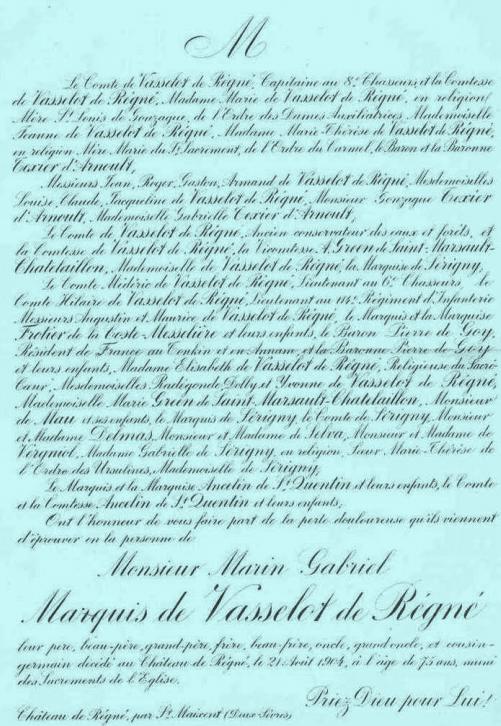 M
Le Comte de Vasselot de Régné, Capitaine au 8e Chasseurs, et la Comtesse
de Vasselot de Régné, Madame Marie de Vasselot de Régné, en religion
Mère St Louis de Gonzague, de l'Ordre des Dames Auxiliatrices, Mademoiselle
Jeanne de Vasselot de Régné, Madame Marie Thérèse de Vasselot de Régné,
en religion Mère Marie du St Sacrement, de l'Ordre du Carmel, le Baron et la Baronne
Texier d'Arnoult,
Messieurs Jean, Roger, Gaston, Armand de Vasselot de Régné, Mesdemoiselles
Louise, Claude, Jacqueline de Vasselot de Régné, Monsieur Gonzague Texier
d'Arnoult, Mademoiselle Gabrielle Texier d'Arnoult,
Le Comte de Vasselot de Régné, Ancien conservateur des eaux et forêts, et
la Comtesse de Vasselot de Régné, la Vicomtesse A. Green de Saint-Marsault-
Chatelaillon, Mademoiselle de Vasselot de Régné, la Marquise de Sérigny,
Le Comte Médéric de Vasselot de Régné, Lieutenant au 6e Chasseurs, le
Comte Hilaire de Vasselot de Régné, Lieutenant au 114e Régiment d'Infanterie
Messieurs Augustin et Maurice de Vasselot de Régné, le Marquis et la Marquise
Frotier de la Coste-Messelière et leurs enfants, le Baron Pierre de Goy,
Résident de France au Tonkin et en Annam, et la Baronne Pierre de Goy
et leurs enfants, Madame Elisabeth de Vasselot de Régné, Religieuse du Sacré-
Cœur, Mesdemoiselles Radégonde, Dolly, et Yvonne de Vasselot de Régné,
Mademoiselle Marie Green de Saint Marsault-Chatelaillon, Monsieur
de Mau et ses enfants, le Marquis de Sérigny, le Comte de Sérigny, Monsieur
et Madame Delmas, Monsieur et Madame de Selva, Monsieur et Madame de
Vergniol, Madame Gabrielle de Sérigny, en religion, Sœur Marie Thérèse de
l'Ordre des Ursulines, Mademoiselle de Sérigny,
Le Marquis et la Marquise Ancelin de St Quentin et leurs enfants, le Comte
et la Comtesse Ancelin de St Quentin et leurs enfants;
Ont l'honneur de vous faire part de la perte douloureuse qu'ils viennent
d'éprouver en la personne de
Monsieur Marin Gabriel
Marquis de Vasselot de Régné
leur père, beau-père, grand-père, frère, beau-frère, oncle, grand oncle, et cousin-
germain décédé au Château de Régné, le 21 Août 1904, à l'âge de 75 ans, muni
des Sacrements de l'Eglise.
Priez Dieu pour Lui!
Château de Régné, par St Maixent (Deux-Sèvres)